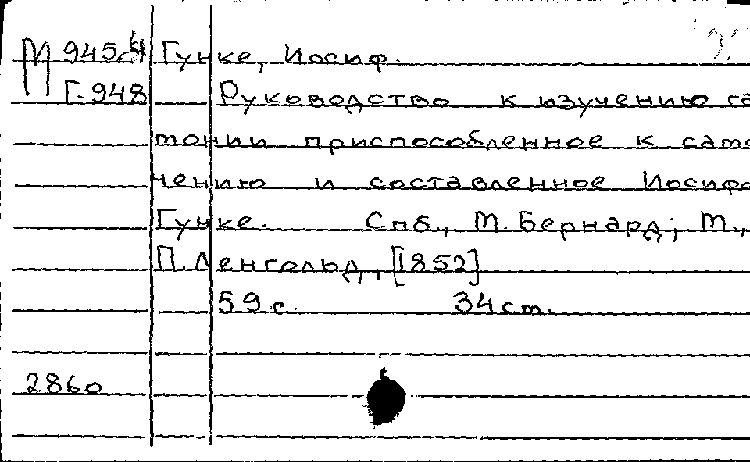 М 945 Гунке, Иосиф.
Г-948 Руководство к изучению га
монии приспособленное к само
чению и составленное Иосифо
Гунке. Спб., М. Бернард; М.,
П. Ленгольд, [1852]
59 с. 34 см.
2860